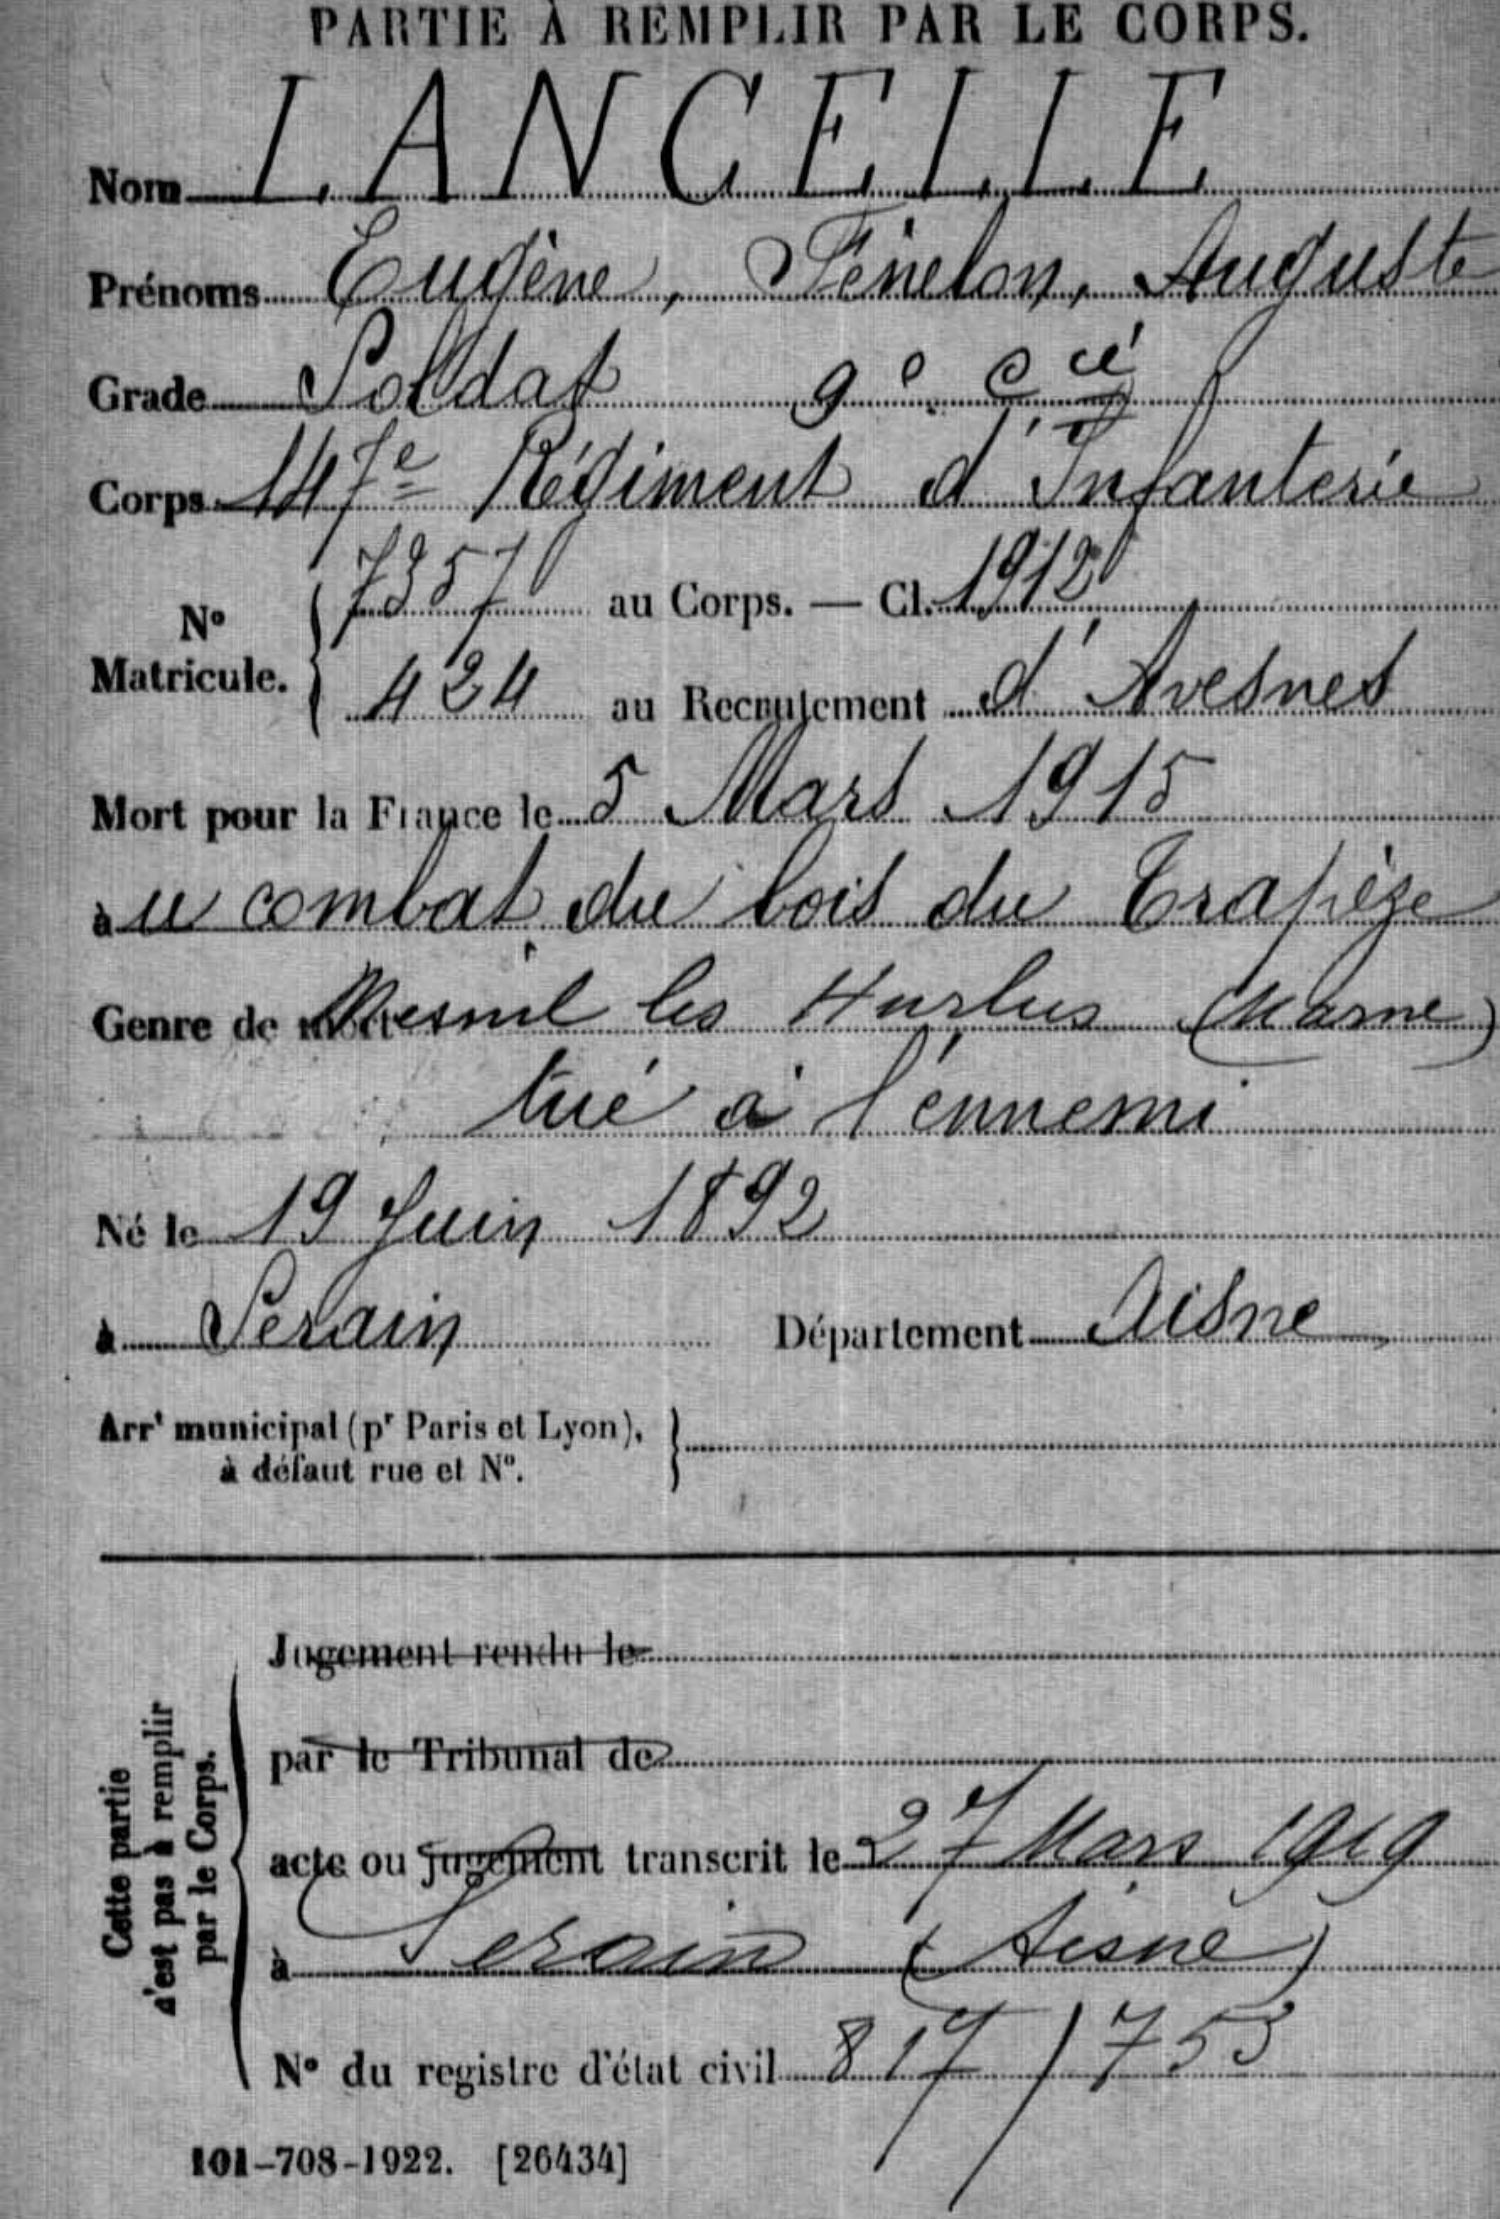 PARTIE À REMPLIR PAR LE CORPS.
Nom LANCELLE
Prénoms Eugène, Fénelon, Auguste
Grade Soldat 9e Cie
Corps 147e Régiment d'Infanterie
N° Matricule. { 7357 au Corps. — Cl. 1912
424 au Recrutement d'Avesnes
Mort pour la France le 5 Mars 1915
au combat du bois du Trapèze
Genre de mort Mesnil les Hurlus (Marne)
tué à l'ennemi
Né le 19 Juin 1892
à Serain Département Aisne
Arrt municipal (pr Paris et Lyon), }
à défaut rue et N°.
Cette partie
n'est pas à remplir
par le Corps.
Jugement rendu le
par le Tribunal de
acte ou jugement transcrit le 27 Mars 1919
à Serain (Aisne)
N° du registre d'état civil 817/753
101-708-1922. [26434]